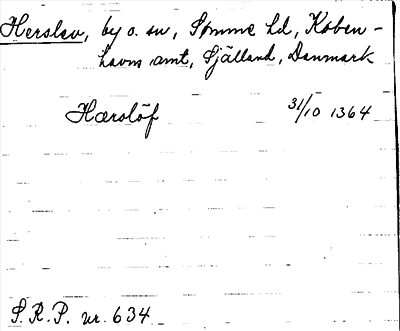 Herslev, by o. sn, Sømme hd, Køben-
havns amt, Själland, Danmark
Hærslöf 31/10 1364
S.R.P. nr. 634